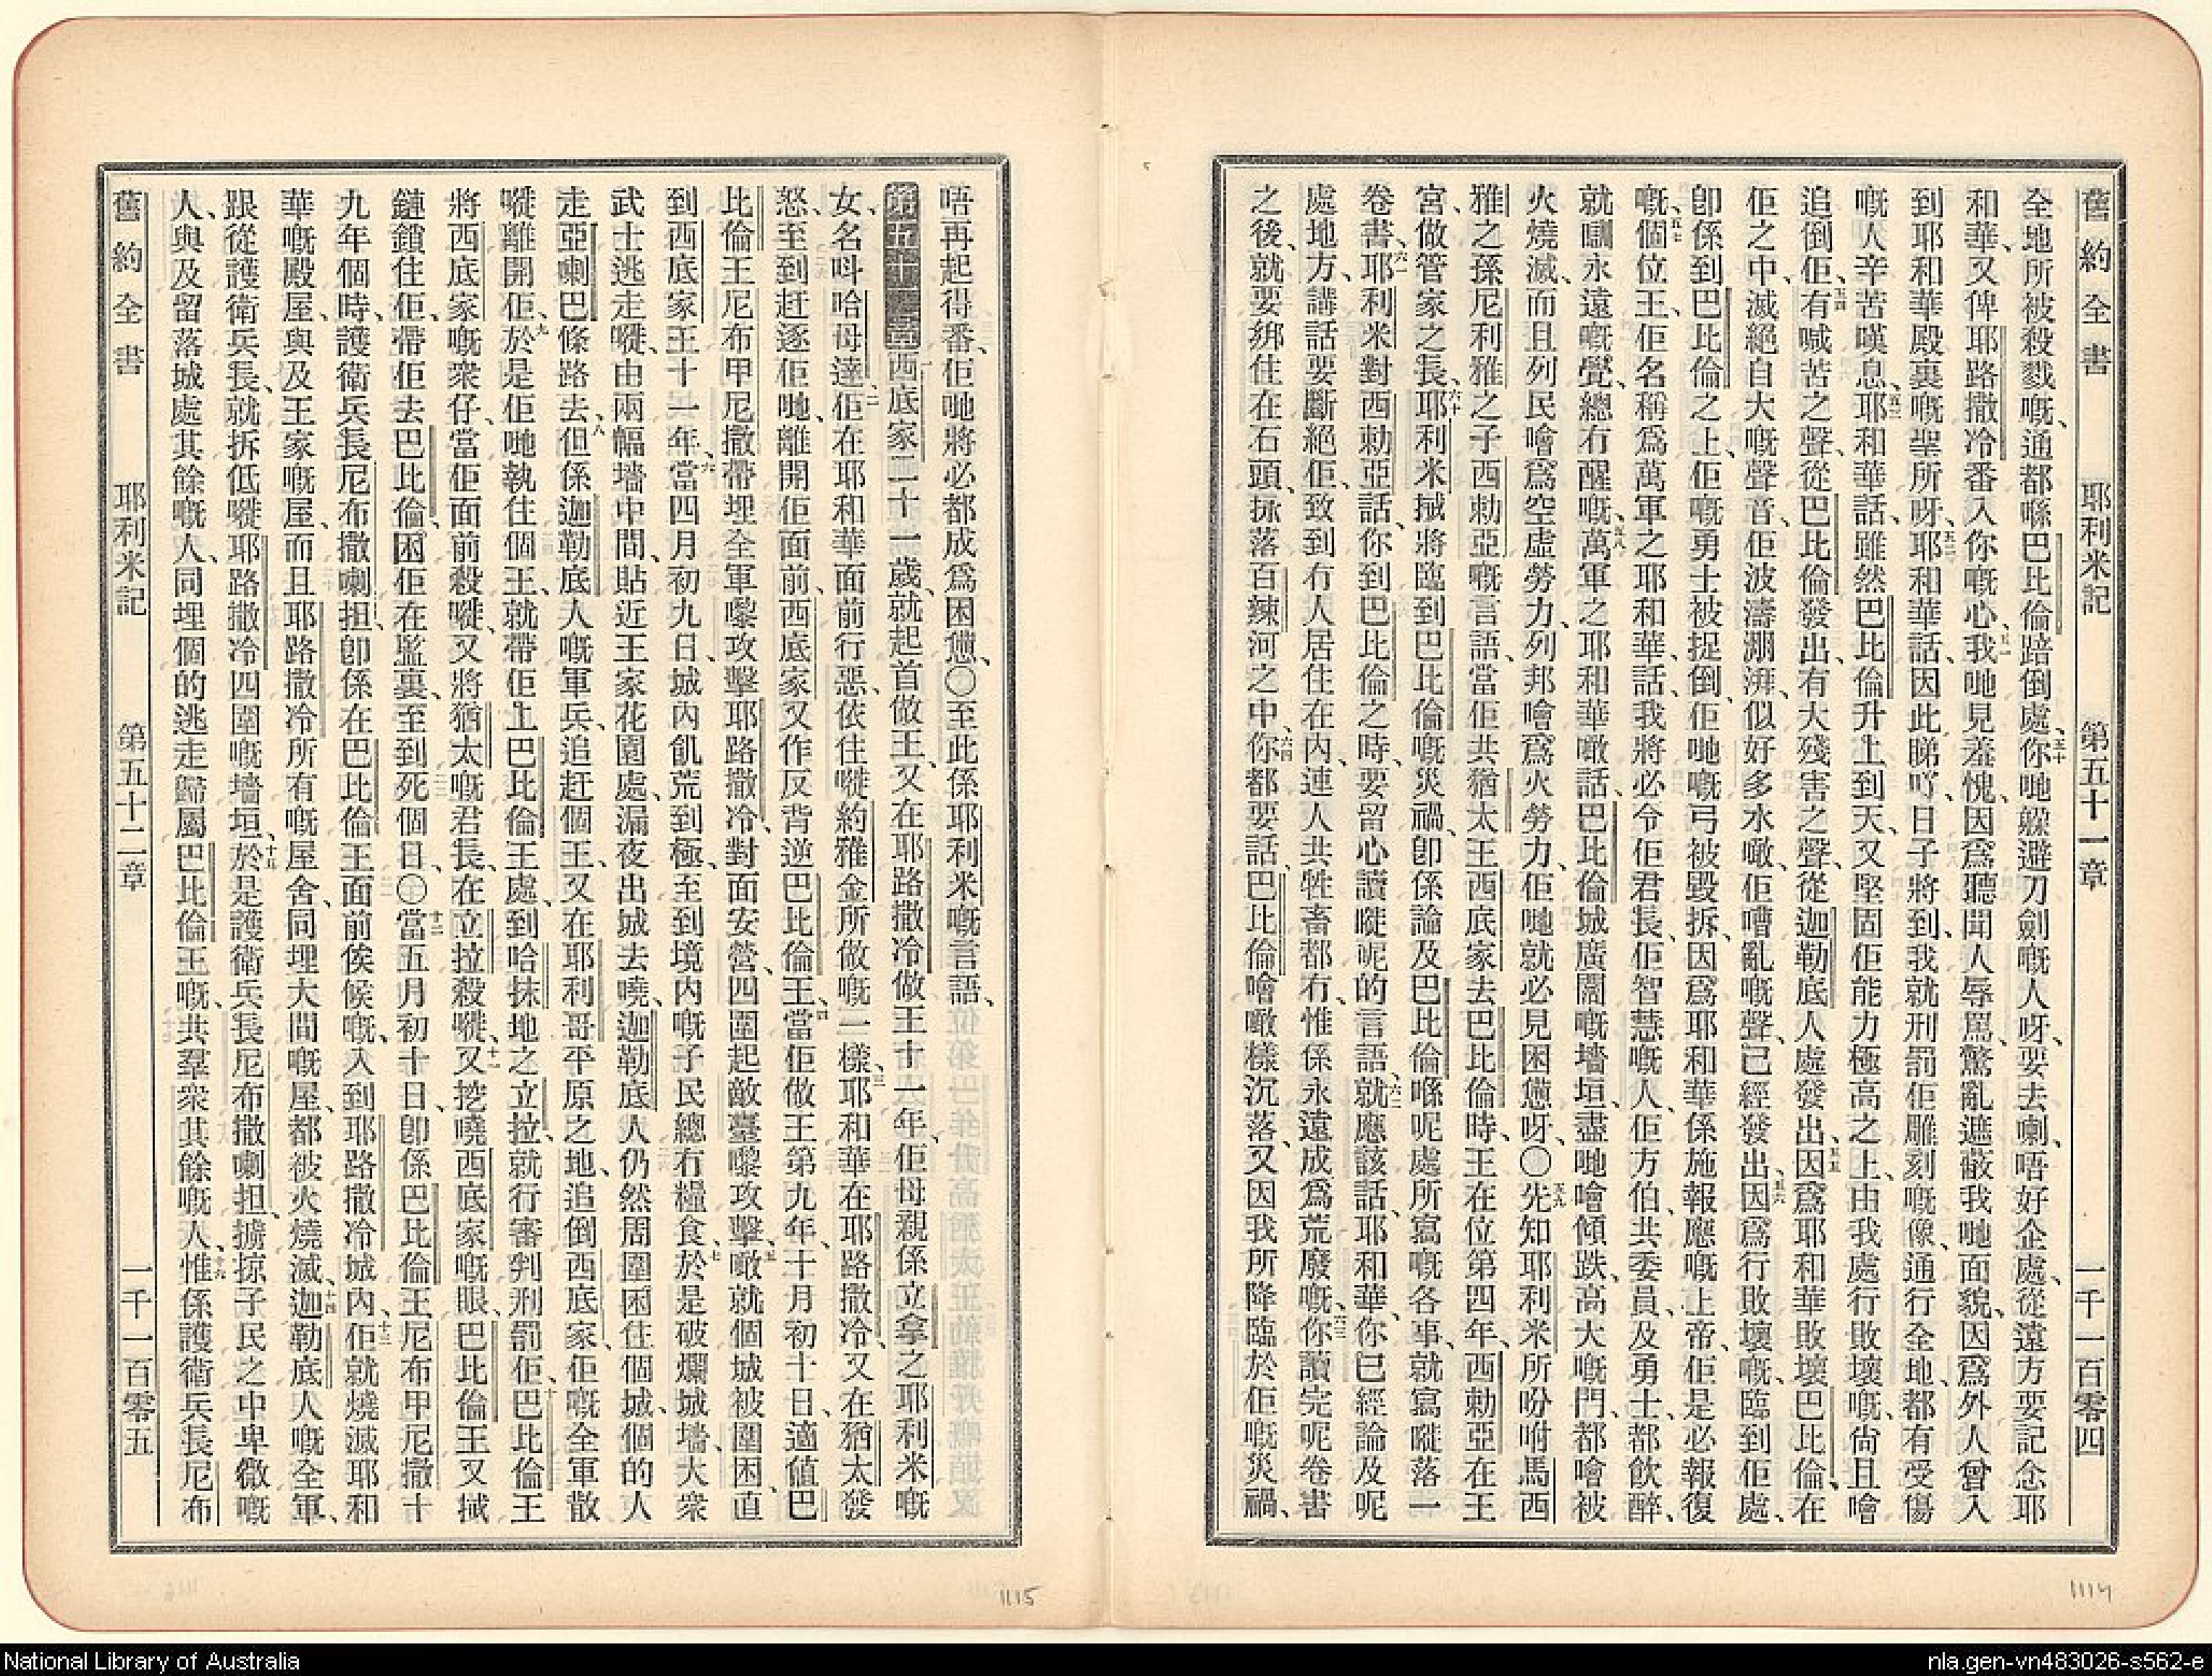 舊約全書 耶利米記 第五十一章 一千一百零四
全地所被殺戮嘅、通都喺巴比倫踣倒處、五十你哋躱避刀劍嘅人呀、要去喇、唔好企處、從遠方要記念耶
和華、又俾耶路撒冷番入你嘅心、五一我哋見羞愧、因爲聽聞人辱罵、驚亂遮蔽我哋面貌、因爲外人曾入
到耶和華殿裏嘅聖所呀、五二耶和華話、因此睇吖、日子將到、我就刑罰佢雕刻嘅像、通行全地、都有受傷
嘅人辛苦嘆息、五三耶和華話、雖然巴比倫升上到天、又堅固佢能力極高之上、由我處行敗壞嘅、尙且噲
追倒佢、五四有喊苦之聲、從巴比倫發出、有大殘害之聲、從迦勒底人處發出、五五因爲耶和華敗壞巴比倫、在
佢之中、滅絕自大嘅聲音、佢波濤淜湃、似好多水噉、佢嘈亂嘅聲、已經發出、五六因爲行敗壞嘅、臨到佢處、
卽係到巴比倫之上、佢嘅勇士被捉倒、佢哋嘅弓被毀拆、因爲耶和華係施報應嘅上帝、佢是必報復
嘅、五七個位王、佢名稱爲萬軍之耶和華、話、我將必令佢君長、佢智慧嘅人、佢方伯、共委員、及勇士、都飮醉、
就瞓永遠嘅覺、總冇醒嘅、五八萬軍之耶和華噉話、巴比倫城廣闊嘅墻垣、盡哋噲傾跌、高大嘅門、都噲被
火燒滅、而且列民噲爲空虛勞力、列邦噲爲火勞力、佢哋就必見困憊呀、〇五九先知耶利米所吩咐馬西
雅之孫、尼利雅之子西勅亞嘅言語、當佢共猶太王西底家、去巴比倫時、王在位第四年、西勅亞在王
宮、做管家之長、六十耶利米摵將臨到巴比倫嘅災禍、卽係論及巴比倫喺呢處所寫嘅各事、就寫嘥落一
卷書、六一耶利米對西勅亞話、你到巴比倫之時、要留心讀嘥呢的言語、六二就應該話、耶和華、你已經論及呢
處地方、講話要斷絕佢、致到冇人居住在內、連人共牲畜都冇、惟係永遠成爲荒廢嘅、六三你讀完呢卷書
之後、就要綁住在石頭、抹落百辣河之中、六四你都要話、巴比倫噲噉樣沉落、又因我所降臨於佢嘅災禍、
唔再起得番、佢哋將必都成爲困憊、〇至此係耶利米嘅言語、
第五十二章 一西底家二十一歲、就起首做王、又在耶路撒冷做王十一年、佢母親係立拿之耶利米嘅
女、名呌哈母達、二佢在耶和華面前行惡、依住嘥約雅金所做嘅一樣、三耶和華在耶路撒冷、又在猶太發
怒、至到赶逐佢哋、離開佢面前、西底家又作反背逆巴比倫王、四當佢做王第九年、十月初十日、適值巴
比倫王尼布甲尼撒、帶埋全軍嚟攻擊耶路撒冷、對面安營、四圍起敵臺嚟攻擊、五噉就個城被圍困、直
到西底家王十一年、六當四月初九日、城內飢荒到極、至到境内嘅子民總冇糧食、七於是破爛城墻、大衆
武士逃走嘥、由兩幅墻中間、貼近王家花園處、漏夜出城去曉、迦勒底人仍然周圍困住個城、個的人
走亞喇巴條路去、八但係迦勒底人嘅軍兵、追赶個王、又在耶利哥平原之地、追倒西底家、佢嘅全軍散
嘥離開佢、九於是佢哋執住個王、就帶佢上巴比倫王處、到哈抹地之立拉、就行審判刑罰佢、十巴比倫王
將西底家嘅衆仔、當佢面前殺嘥、又將猶太嘅君長、在立拉殺嘥、十一又挖曉西底家嘅眼、巴比倫王又摵
鏈鎖住佢、帶佢去巴比倫、困佢在監裏、至到死個日、〇十二當五月初十日、卽係巴比倫王尼布甲尼撒十
九年個時、護衛兵長尼布撒喇担、卽係在巴比倫王面前俟候嘅、入到耶路撒冷城內、十三佢就燒滅耶和
華嘅殿屋、與及王家嘅屋、而且耶路撒冷所有嘅屋舍、同埋大間嘅屋、都被火燒滅、十四迦勒底人嘅全軍、
跟從護衛兵長、就拆低嘥耶路撒冷四圍嘅墻垣、十五於是護衛兵長尼布撒喇担、擄掠子民之中卑微嘅
人、與及留落城處其餘嘅人、同埋個的逃走歸屬巴比倫王嘅、共羣衆其餘嘅人、十六惟係護衛兵長尼布
舊約全書 耶利米記 第五十二章 一千一百零五
1115
1114
National Library of Australia
nla.gen-vn483026-s562-e